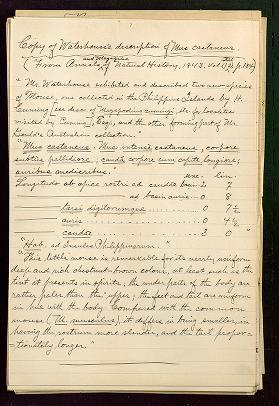 Copy of Waterhouse's description of Mus castaneus.
(From Annals and Magazine of Natural History, 1843, Vol. 12, p. 134)
" Mr. Waterhouse exhibited and described two new species
of Mouse, one collected in the Philippine Islands by H.
Cuming [see desc. of Megapodius cumingi, etc. for localities
visited by Cuming], Esq., and the other forming part of Mr.
Gould's Australian collection."
" Mus castaneus. Mus vividè castaneus, corpore
subtùs pallidiore; caudâ corpore cum capite longiore;
auribus mediocribus."
unc. lin.
Longitudo ab apice rostri ad caudæ basin 2 7
ad basin auris 0 8
tarsi digitorumque 0 7½
auris 0 4½
caudæ 3 0
" Hab. ad Insulas Philippinarum. "
" This little mouse is remarkable for its nearly uniform
deep and rich chestnut-brown colour, at least such is the
tint it presents in spirits; the under parts of the body are
rather paler than the upper; the feet and tail are uniform
in hue with the body. Compared with the common
mouse (M. musculus), it differs in being smaller, in
having the rostrum more slender, and the tail propor-
=tionately longer. "